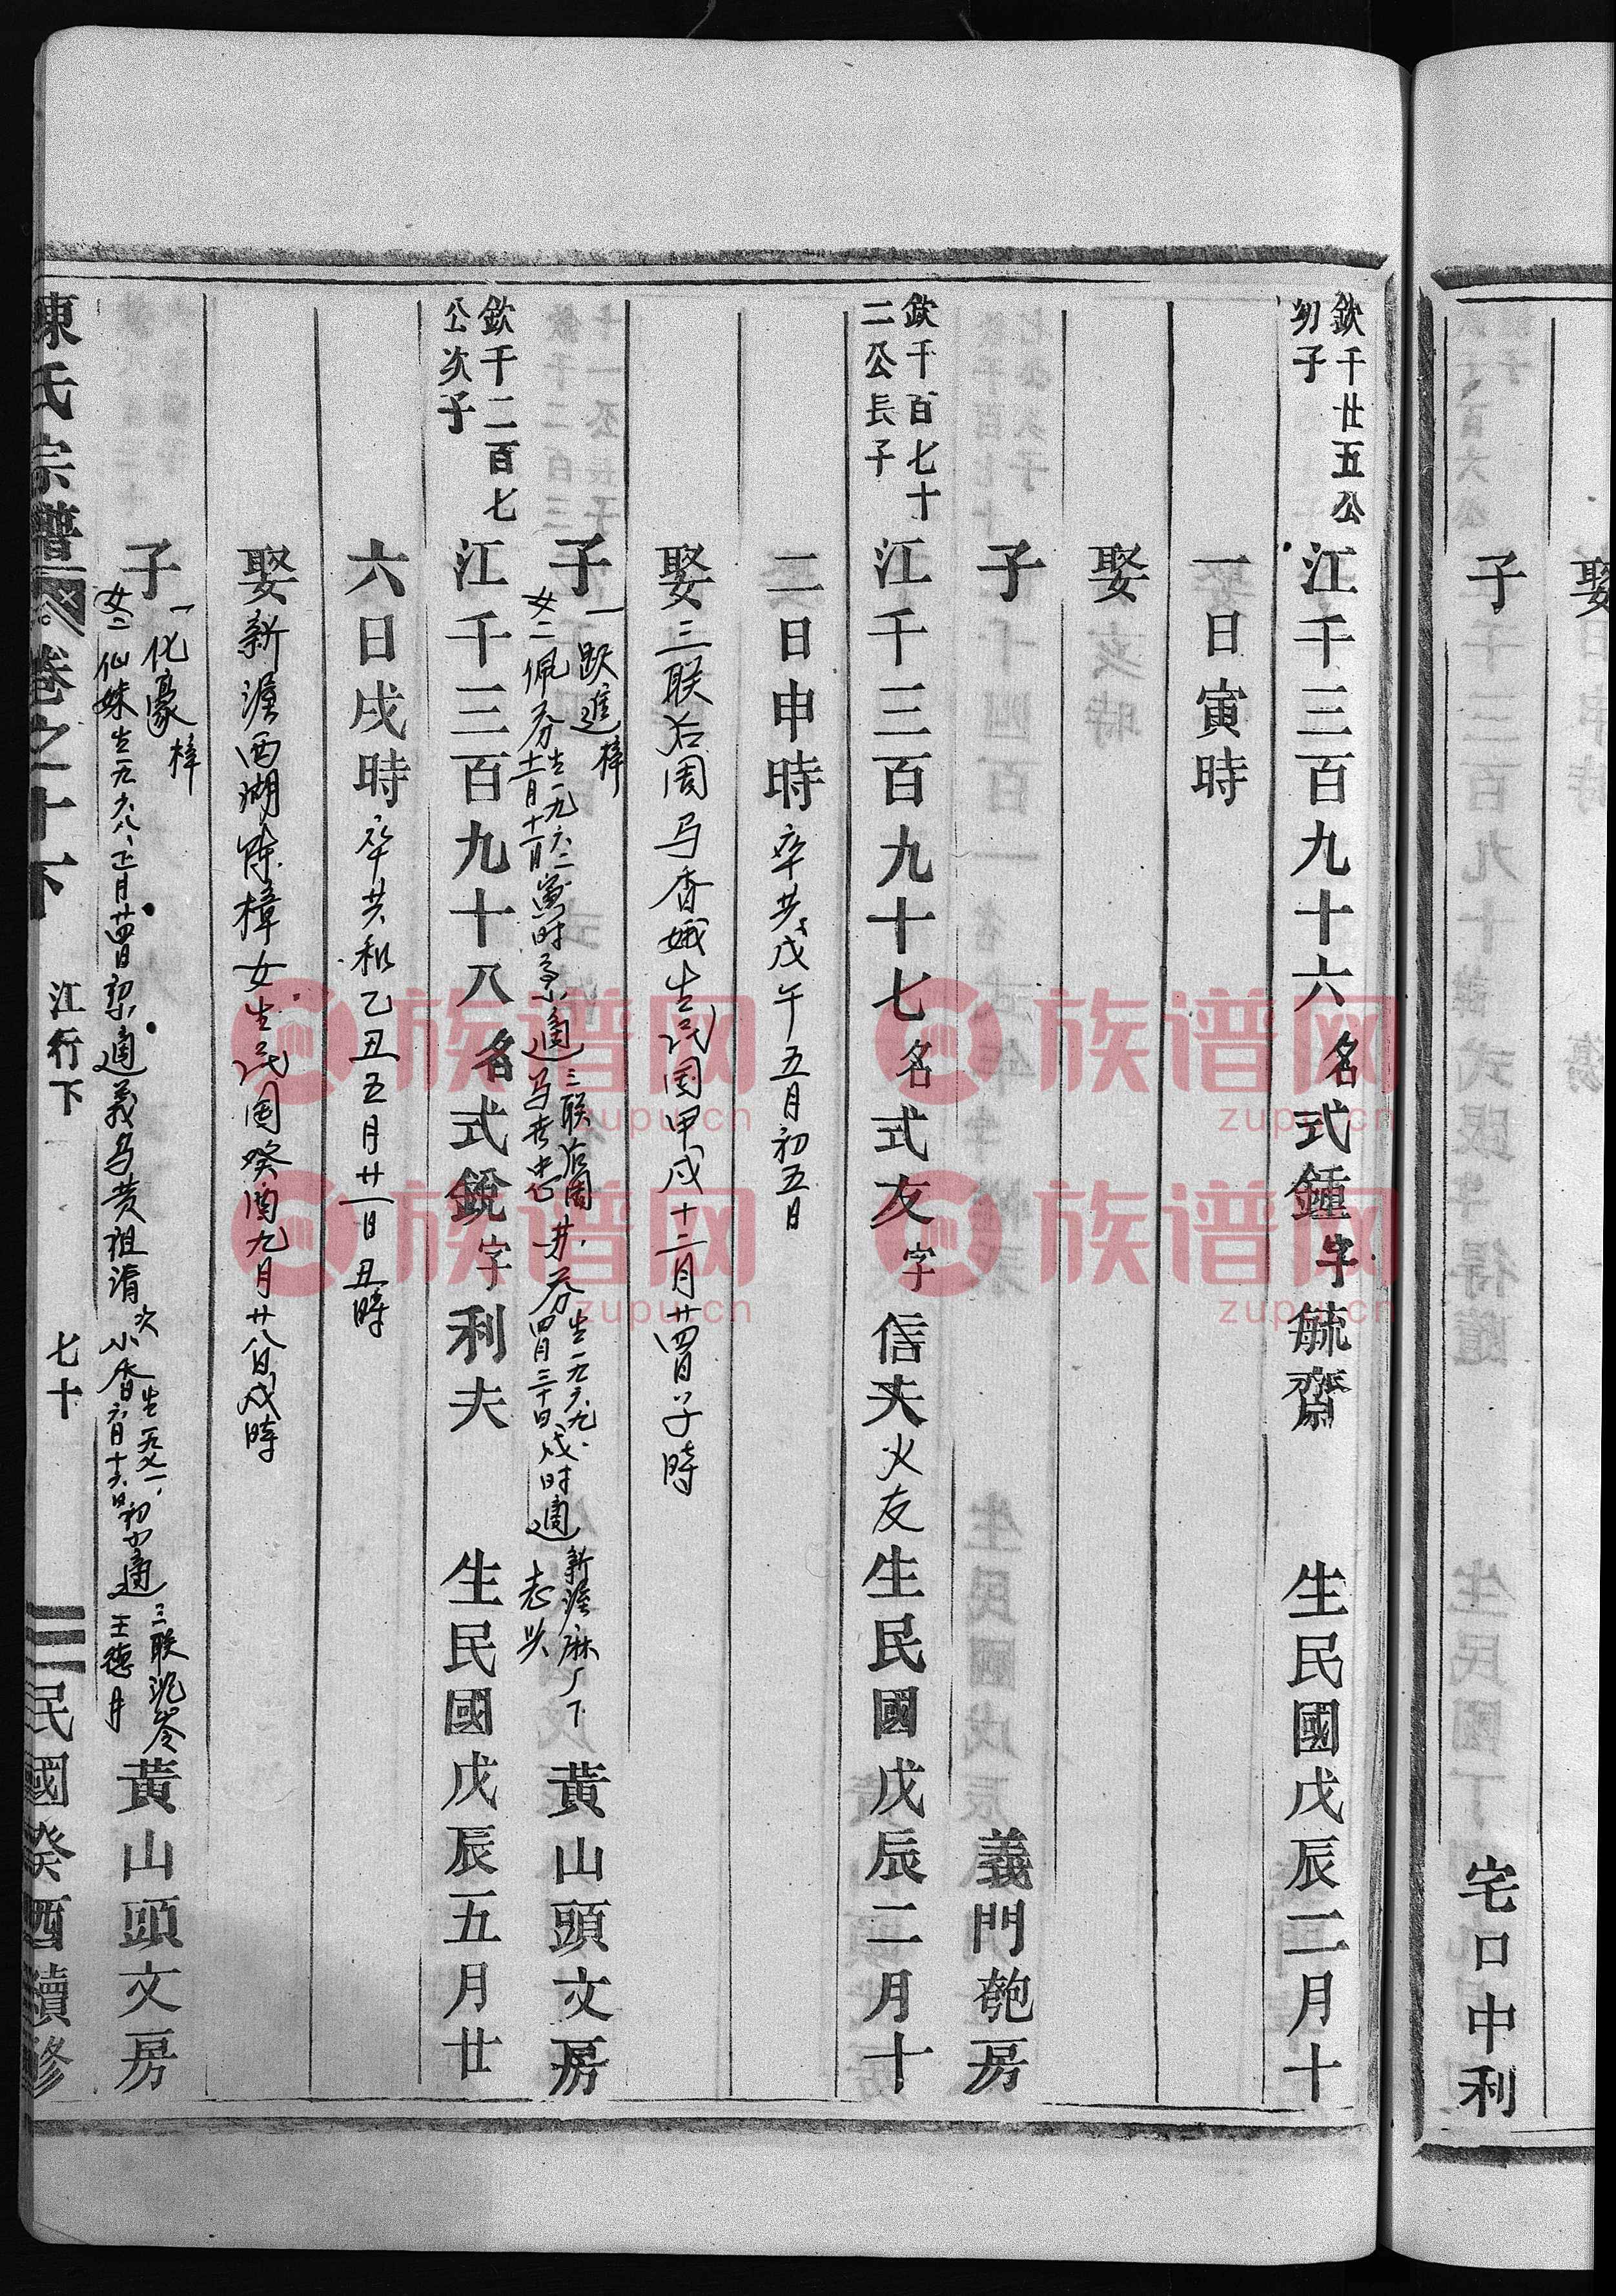 娶
子 宅口中利
欽千廿五公
幼子
江千三百九十六名式鍾字毓齋 生民國戊辰二月十
一日寅時
娶
子 義門匏房
欽千百七十
二公長子
江千三百九十七名式友字信夫火友生民國戊辰二月十
二日申時卒共戊午五月初五日
娶三联后周马香娥生民国甲戌十二月廿四日子時
子一跃進樟
女二佩芬生一九六二
十二月十一日寅时 適三联后周
马世忠 芬生一九六九
四月三十日戌时適新渥麻厂下
志兴
黃山頭文房
欽千二百七
公次子
江千三百九十八名式銳字利夫 生民國戊辰五月廿
六日戌時卒共和乙丑五月廿一日丑時
娶新渥西湖陈樟女生民国癸酉九月廿八日戌時
子一化豪樟
女二仙姝生一九六八、正月廿四日 適義乌黄祖清次小香生一九七一、
六月十六日 適三联泥岺
王德月
黃山頭文房
陳氏宗譜 卷之十下 江行下 七十 民國癸酉續修
族谱网
zupu.cn
族谱网
zupu.cn
族谱网
zupu.cn
族谱网
zupu.cn